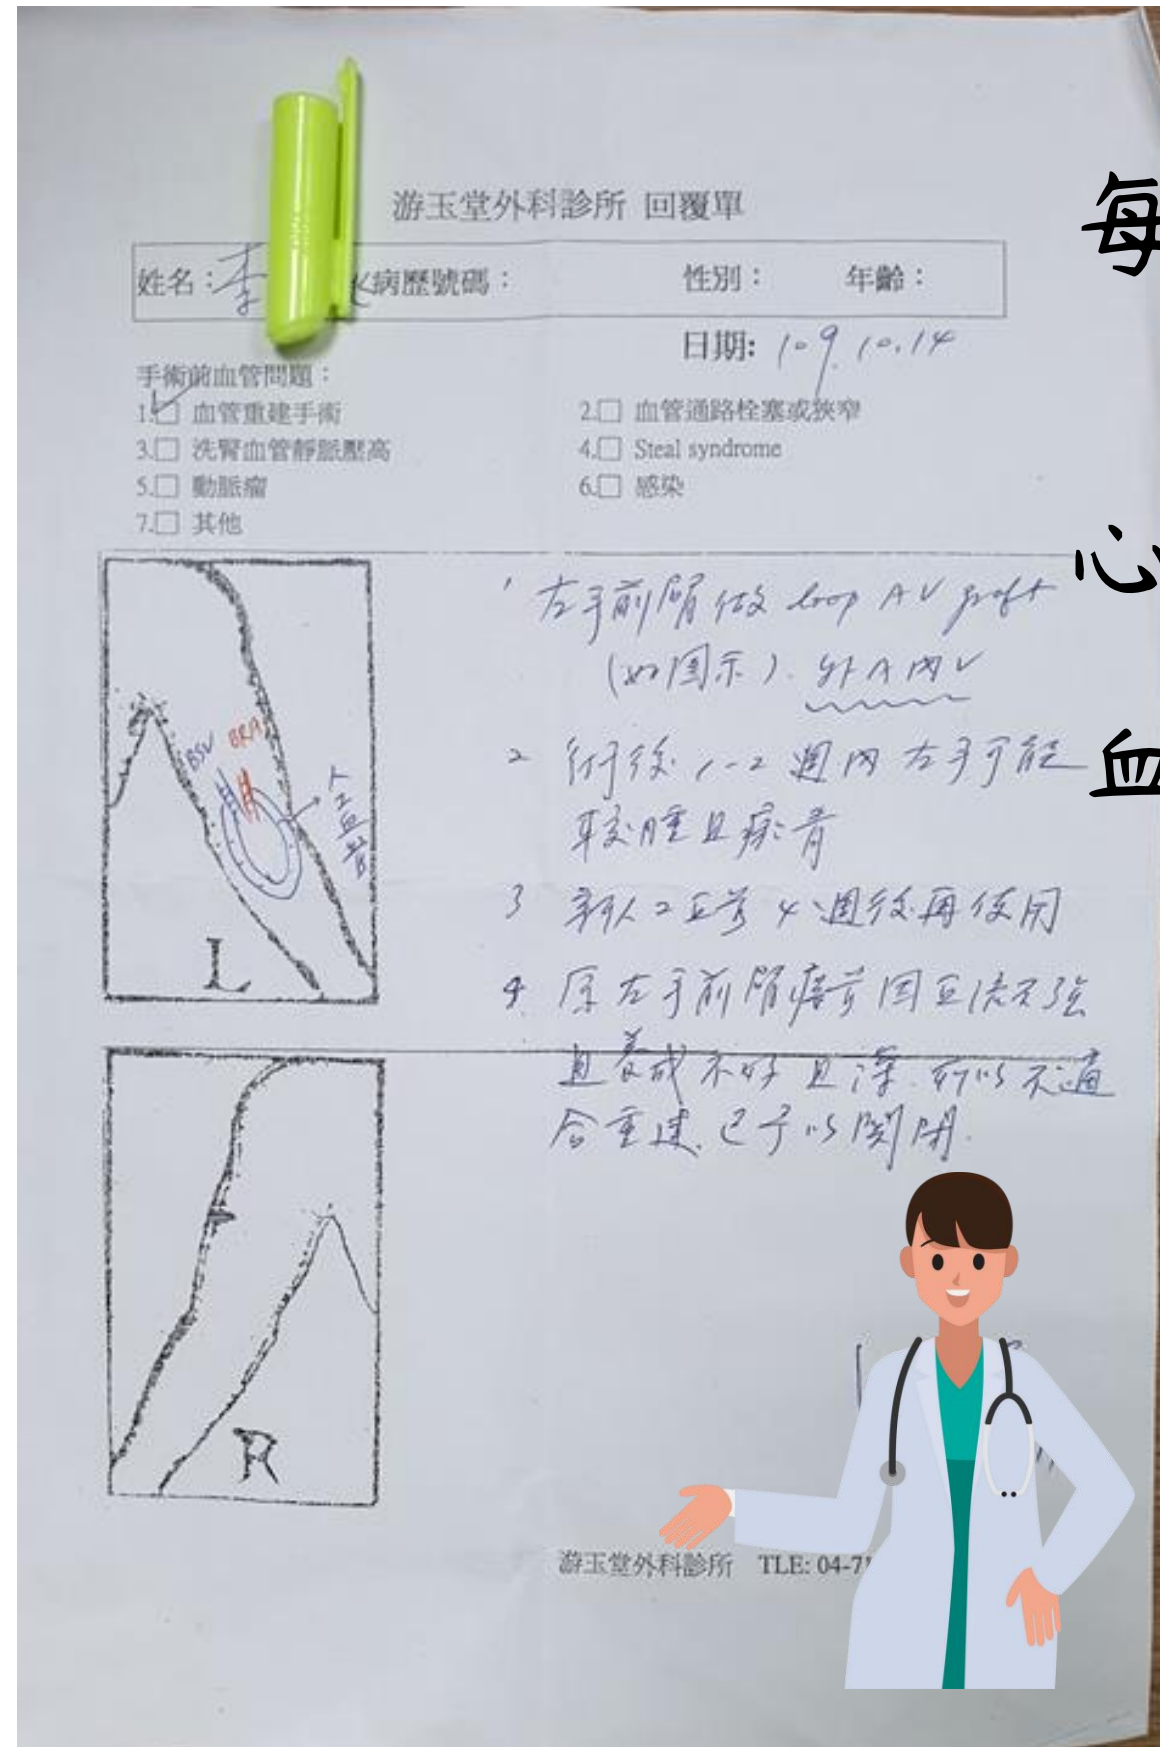 游玉堂外科診所 回覆單
姓名：李 病歷號碼： 性別： 年齡：
日期: 109.10.14
手術前血管問題：
1.□ 血管重建手術 2.□ 血管通路栓塞或狹窄
3.□ 洗腎血管靜脈壓高 4.□ Steal syndrome
5.□ 動脈瘤 6.□ 感染
7.□ 其他
1 左手前臂做 loop AV graft
(如圖示). 外A內V
2 術後 1-2 週內 左手可能
較腫且瘀青
3 新人工血管 4週後再使用
4. 原左手前臂瘻管因血流不強
且養成不好且深. 所以不適
合重建. 已予以關閉.
BSV BRA
人工血管
L
R
游玉堂外科診所 TLE: 04-7
每
心
血